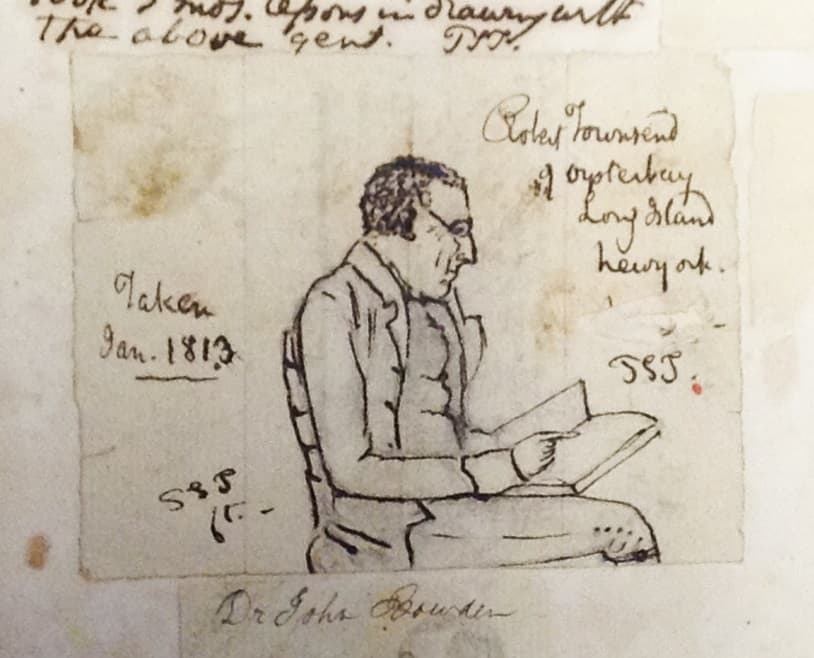 took 3 mos. lessons in drawing with
the above gent. TST.
Robert Townsend
of Oysterbay
Long Island
Newyork.
Taken
Jan. 1813
TST.
Dr John Bowden